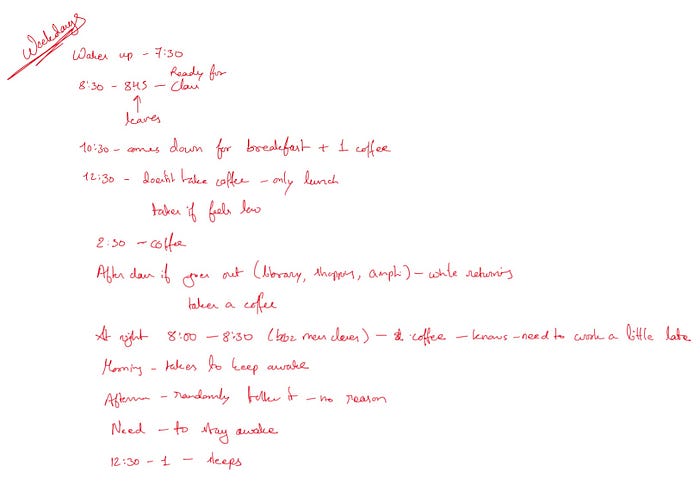 Weekdays
Wakes up - 7:30
8:30 - 845 - Ready for Class
leaves
10:30 - comes down for breakfast + 1 coffee
12:30 - doesn't take coffee - only lunch
takes if feels low
2:30 - coffee
After class if goes out (library, shopping, amphi) - while returning
takes a coffee
At night 8:00 - 8:30 (mess closes) - coffee - knows - need to work a little late
Morning - takes to keep awake
Aftern - randomly - no reason
Need - to stay awake
12:30 - 1 - sleeps